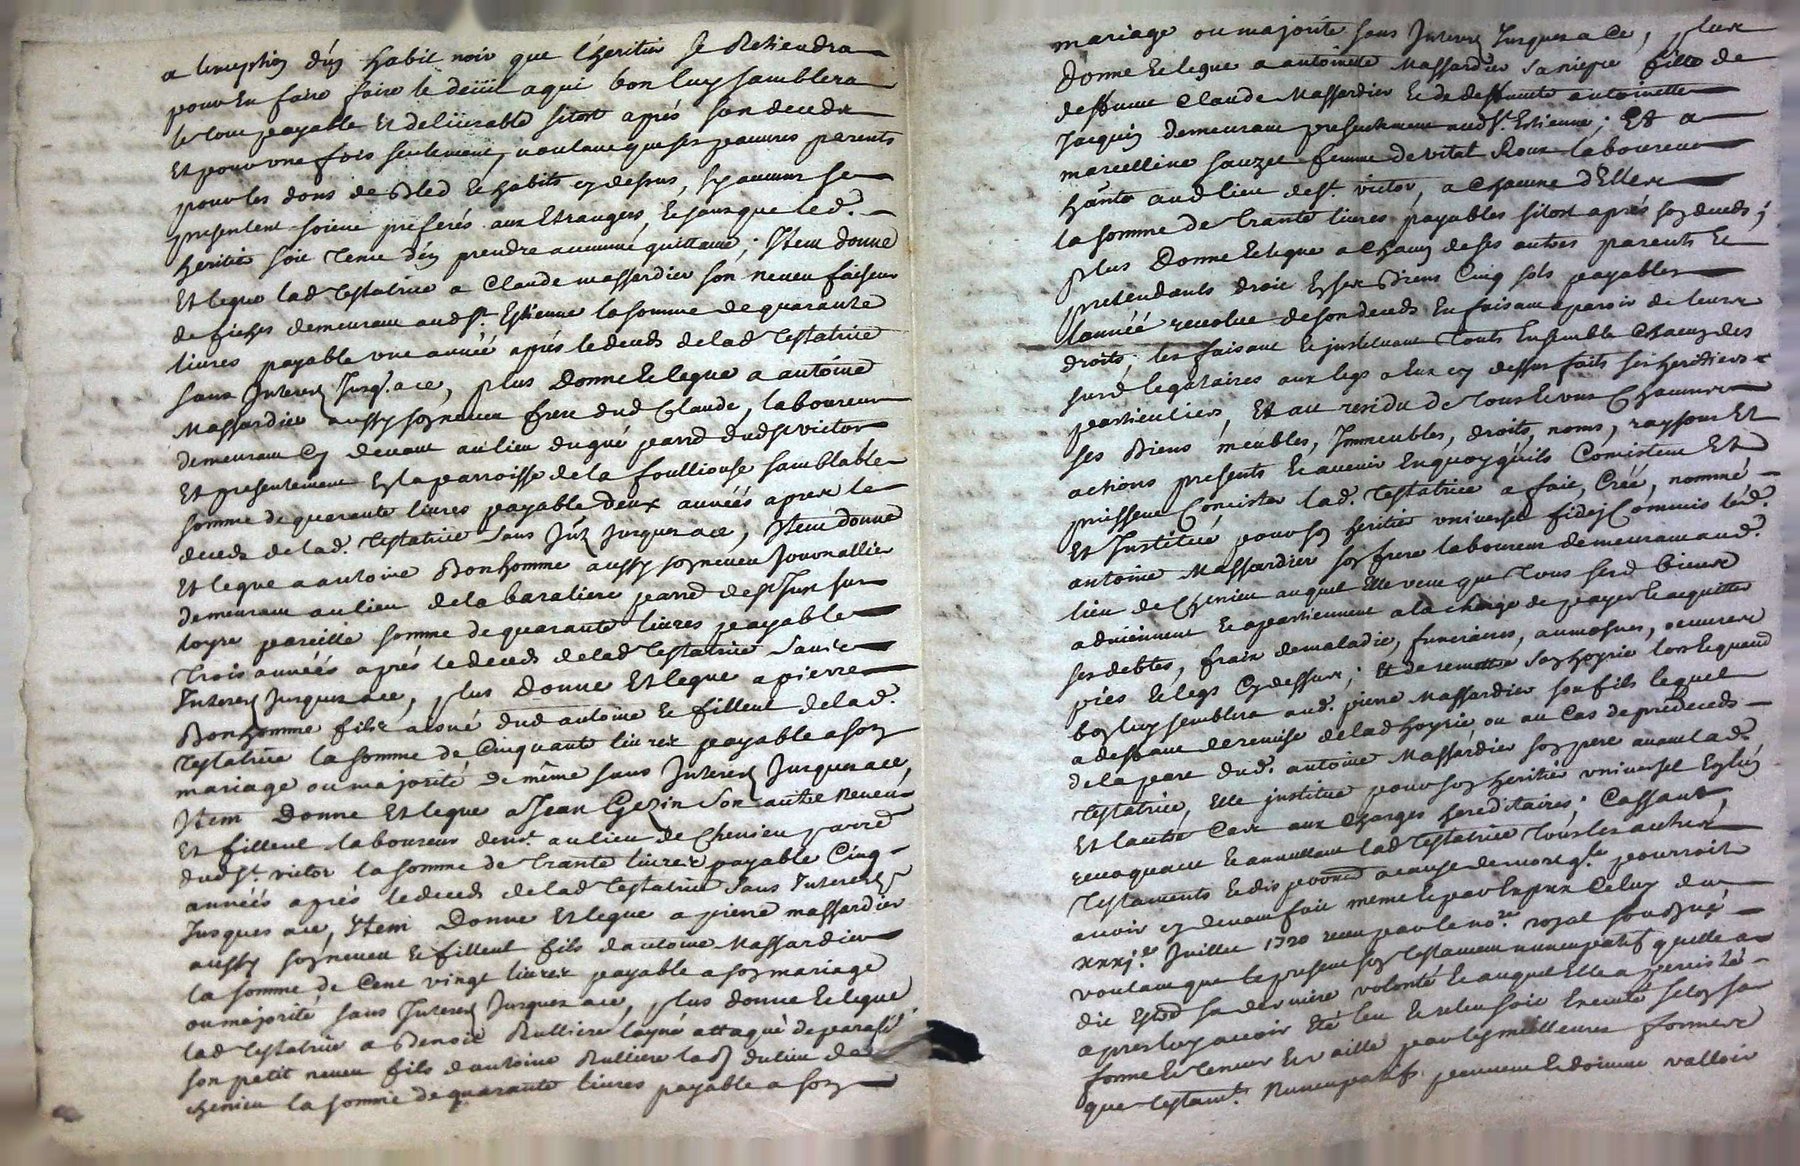 a lexception d'un habit noir que l'heritier se Retiendra
pour En faire faire le deüil a qui bon luy samblera
le tout payable Et delivrable sitost aprés son deceds
Et pour une fois seulement, voulant que ses pauvres parents
pour les dons de Bled Et habits cy dessus, sy aucuns se
presentent soient preferés aux Etrangers, Et sans que led.
heritier soit tenu d'en prendre aucune quittance; Item donne
Et legue lad Testatrice a Claude massardier son neveu faiseur
de fiches demeurant aud St. Estienne la somme de quarante
livres payable une année aprés le deceds de lad Testatrice
sans Interest Jusq. a ce, plus Donne Et legue a antoine
Massardier aussy son neveu frere dud Claude, laboureur
demeurant cy devant au lieu du gué parré dud St victor
Et presentement En la parroisse de la foulliouse samblable
somme de quarante livres payable Deux années apres le
deceds de lad. Testatrice sans Jnt Jusques a ce, Item donne
Et legue a antoine Bonhomme aussy son neveu Journallier
demeurant au lieu de la baraliere parré de St Just sur
loyre pareille somme de quarante livres payable
Trois années aprés le deceds de lad Testatrice sans
Interest Jusques a ce, plus Donne Et legue a pierre
Bonhomme fils aisné dud antoine Et filleul de lad.
Testatrice la somme de Cinquante livres payable a son
mariage ou majorité de même sans Interest Jusques a ce,
Item Donne Et legue a Jean Gezin son autre Neveu
Et filleul laboureur demt. au lieu de Chenieu parré
dud St. victor la somme de Trante livres payable Cinq
années aprés le deceds de lad Testatrice sans Interest
Jusques a ce, Item Donne Et legue a pierre massardier
aussy son neveu Et filleul fils dantoine Massardier
la somme de Cent vingt livres payable a son mariage
ou majorité sans Interest Jusques a ce, plus donne Et legue
lad Testatrice a Benoit Rulliere layné attaqué de paralisie
son petit neveu fils dantoine Rulliere lab du lieu de
chenieu la somme de quarante livres payable a son
mariage ou majorité sans Interest Jusques a ce, plus
donne Et legue a antoinette Massardier sa niepce fille de
deffunt Claude Massardier Et de deffunte antoinette
Jacquin demeurant presentement aud St. Estienne; Et a
marcelline sauzee femme de vital Roux laboureur
habitant aud lieu de St. victor, a Chacune d'Elles
la somme de Trante livres payables sitost aprés son deceds;
plus Donne Et legue a Chacun de ses autres parents Et
pretendants droit En ses Biens Cinq sols payables
lannéé revolue de son deceds En faisant aparoir de leurs
droits, les faisant Et instituant Touts Ensemble Chacun des
susd legataires aux legs a Eux cy dessus faits ses heritiers
particuliers, Et au residu de Tous Et uns Chacuns
ses Biens meubles, Immeubles, droits, noms, raysons Et
actions presents Et avenir En quoy qu'ils Consistent Et
puissent Consister lad. Testatrice a fait, Créé, nommé
Et Institué pour son heritier universel fidej Commis led.
antoine Massardier son frere laboureur demeurant aud.
lieu de Chenieu auquel Elle veut que Tous sesd biens
adviennent Et apartiennent a la charge de payer Et acquitter
ses debtes, fraix de maladie, funeraires, aumosnes, oeuvres
pies Et legs Cy dessus; Et de remettre son hoyrie lors Et quand
bon luy semblera aud. pierre Massardier son fils lequel
a deffaut de remise de lad hoyrie ou au Cas de predeceds
de la part dud. antoine Massardier son pere avant lad.
Testatrice, Elle institue pour son heritier universel En l'un
Et lautre Cas aux Charges hereditaires; Cassant,
revoquant Et annullant lad Testatrice Tous les autres
Testaments Et dispositions a cause de mort qle. pourroit
avoir cy devant fait meme Et par Exprex Celuy du
xxxj.e Juillet 1720 receu par le no.re royal soussigné
voulant que le present son testament nuncupatif quelle a
dit Estre sa derniere volonté Et auquel Elle a percisté
apres luy avoir Eté leu Et releu soit Executé selon sa
forme Et teneur Et vaille par les meilleures formes
que testamt. Nuncupatifs peuvent Et doivent valloir